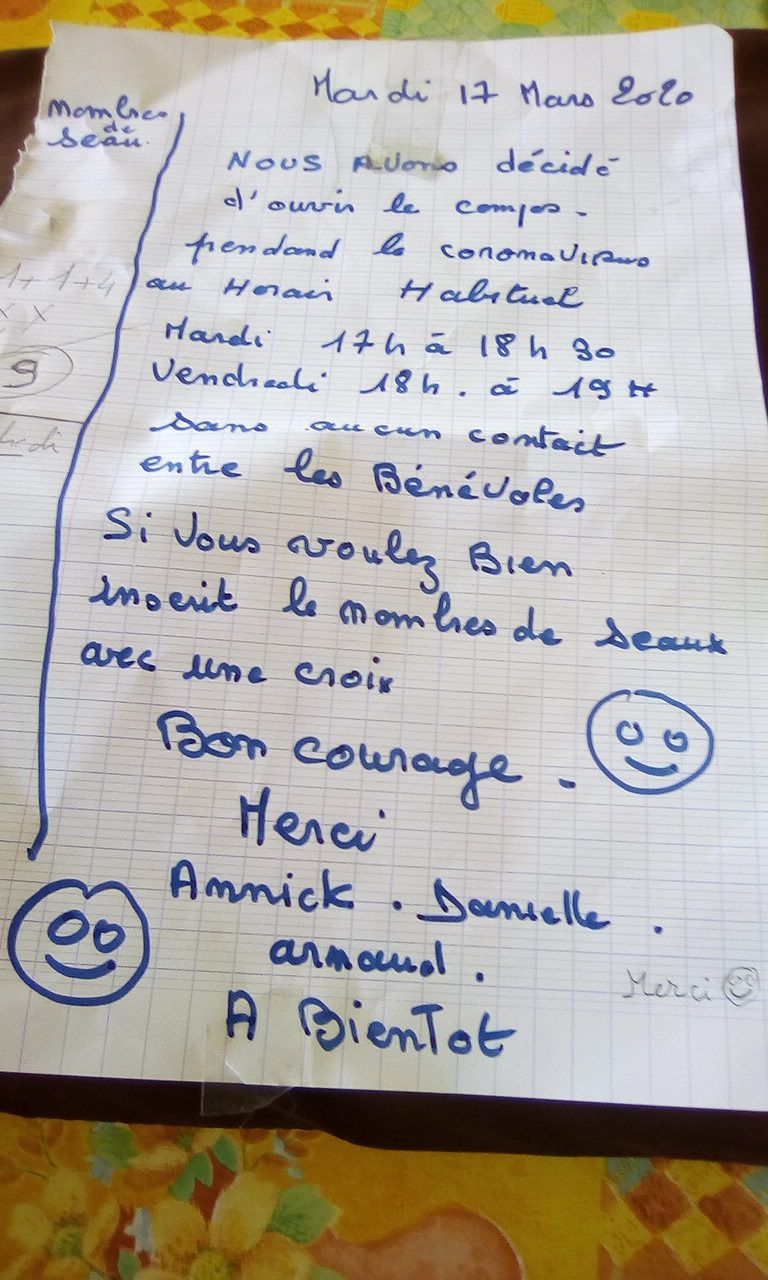 Mardi 17 Mars 2020
Nombres
de
seau.
NOUS AVons décidé
d'ouvrir le compos.
pendand le coronavirus
au Horair Habituel
Mardi 17h à 18h 30
Vendredi 18h. à 19H
sans aucun contact
entre les BénéVoles
Si Vous voulez Bien
inscrit le nombres de seaux
avec une croix
1+1+4
X X
9
Bon courage.
Merci
Annick. Danielle.
armaud.
Merci
A BienTot